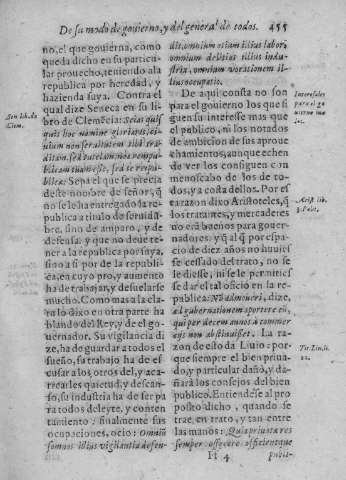 De su modo de gouierno, y del general de todos. 455
no, el que gouierna, como
queda dicho en su particu-
lar prouecho, teniendo a la
republica por heredad, y
hazienda suya. Contra el
qual dize Seneca en su li-
bro de Clemēcia: Scias quis-
quis hoc nomine gloriaris, ci-
uium non seruitutem tibi tra-
ditam, sed tutelam, nec rempu-
blicam tuam esse, sed te reipu-
blicæ: Sepa el que se precia
deste nombre de señor, q̄
no se le ha entregado la re-
publica a titulo de seruidū-
bre, sino de amparo, y de
defensa: y que no deue te-
ner a la republica por suya,
sino a si por de la republi-
ca, en cuyo pro, y aumento
ha de trabajar, y desuelarse
mucho. Como mas a la cla-
ra lo dixo en otra parte ha
blando del Rey, y de el go-
uernador. Su vigilancia di
ze, ha de guardar a todos el
sueño, su trabajo ha de es-
cusar a los otros del, y aca-
rrearles quietud, y descan-
so, su industria ha de ser pa
ra todos deleyte, y conten
tamiento: finalmente sus
ocupaciones, ocio: Omniū
somnos illius vigilantia defen-
Sen. lib. de
Clem.
dit, omnium otium illius labor,
omnium delitias illius indu-
stria, omnium vacationem il-
lius occupatio.
De aqui consta no son
para el gouierno los que si
guen su interesse mas que
el publico, ni los notados
de ambicion de sus aproue
chamientos, aunque echen
de ver los consiguen con
menoscabo de los de to-
dos, y a costa dellos. Por es
ta razon dixo Aristoteles, q̄
los tratantes, y mercaderes
no erā buenos para gouer-
nadores: y q̄ al q̄ por espa-
cio de diez años no huuies
se cessado del trato, no se
le diesse, ni se le permities
se dar el tal oficio en la re-
publica: Nō admoueri, dize,
ad gubernationem oportere eū,
qui per decem annos à commer-
cijs non abstinuisset. La ra-
zon de esto da Liuio: por-
que siempre el bien priua-
do, y particular dañò, y da-
ñarà los consejos del bien
publico. Entiendese al pro
posito dicho, quando se
trae, en trato, y tan entre
las manos: Quia priuatæ res
semper offecere officientque
Interesales
para el go
uierno ma
los.
Arist. lib.
3. Polit.
Tit. Liu. li.
22.
H 4
publi-